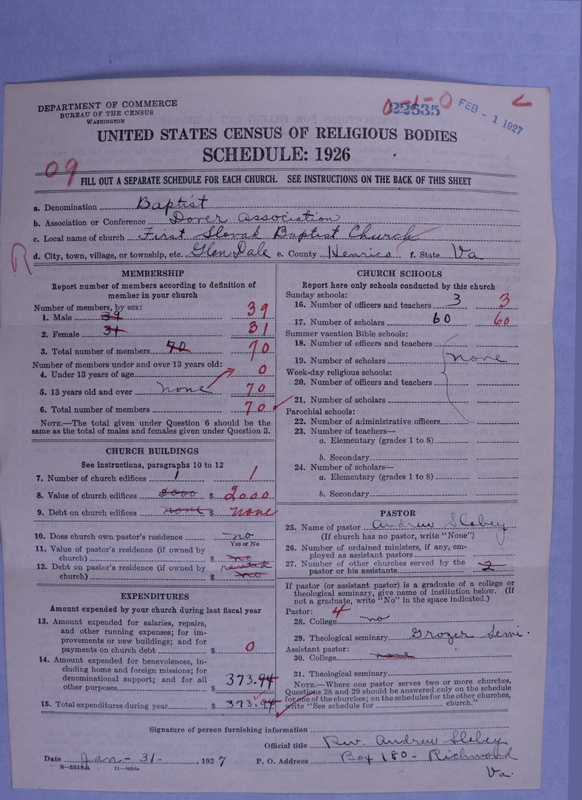 DEPARTMENT OF COMMERCE
BUREAU OF THE CENSUS
WASHINGTON
FEB - 1 1927
UNITED STATES CENSUS OF RELIGIOUS BODIES
SCHEDULE: 1926
09
FILL OUT A SEPARATE SCHEDULE FOR EACH CHURCH. SEE INSTRUCTIONS ON THE BACK OF THIS SHEET
a. Denomination Baptist
b. Association or Conference Dover Association
c. Local name of church First Slovak Baptist Church
d. City, town, village, or township, etc. Glen Dale e. County Henrico f. State Va
R
MEMBERSHIP
Report number of members according to definition of
member in your church
Number of members, by sex:
1. Male 39 39
2. Female 31 31
3. Total number of members 70 70
Number of members under and over 13 years old:
4. Under 13 years of age 0
5. 13 years old and over none 70
6. Total number of members 70
NOTE.—The total given under Question 6 should be the
same as the total of males and females given under Question 3.
CHURCH BUILDINGS
See instructions, paragraphs 10 to 12
7. Number of church edifices 1 1
8. Value of church edifices $ 2000
9. Debt on church edifices none $ none
10. Does church own pastor's residence no
Yes or No
11. Value of pastor's residence (if owned by
church) $ no
12. Debt on pastor's residence (if owned by
church) $ no
EXPENDITURES
Amount expended by your church during last fiscal year
13. Amount expended for salaries, repairs,
and other running expenses; for im-
provements or new buildings; and for
payments on church debt $ 0
14. Amount expended for benevolences, in-
cluding home and foreign missions; for
denominational support; and for all
other purposes $ 373.94
15. Total expenditures during year $ 373.94
CHURCH SCHOOLS
Report here only schools conducted by this church
Sunday schools:
16. Number of officers and teachers 3 3
17. Number of scholars 60 60
Summer vacation Bible schools:
18. Number of officers and teachers
19. Number of scholars none
Week-day religious schools:
20. Number of officers and teachers
21. Number of scholars
Parochial schools:
22. Number of administrative officers
23. Number of teachers—
a. Elementary (grades 1 to 8)
b. Secondary
24. Number of scholars—
a. Elementary (grades 1 to 8)
b. Secondary
PASTOR
25. Name of pastor Andrew Slabey
(If church has no pastor, write "None")
26. Number of ordained ministers, if any, em-
ployed as assistant pastors
27. Number of other churches served by the
pastor or his assistants 2
If pastor (or assistant pastor) is a graduate of a college or
theological seminary, give name of institution below. (If
not a graduate, write "No" in the space indicated.)
Pastor: 4
28. College no
29. Theological seminary Crozer Semi.
Assistant pastor:
30. College none
31. Theological seminary
NOTE.—Where one pastor serves two or more churches,
Questions 28 and 29 should be answered only on the schedule
for one of the churches; on the schedules for the other churches,
write "See schedule for church."
Signature of person furnishing information
Official title Rev. Andrew Slabey
Date Jan - 31 - , 1927 P. O. Address Box 180 - Richmond
Va.